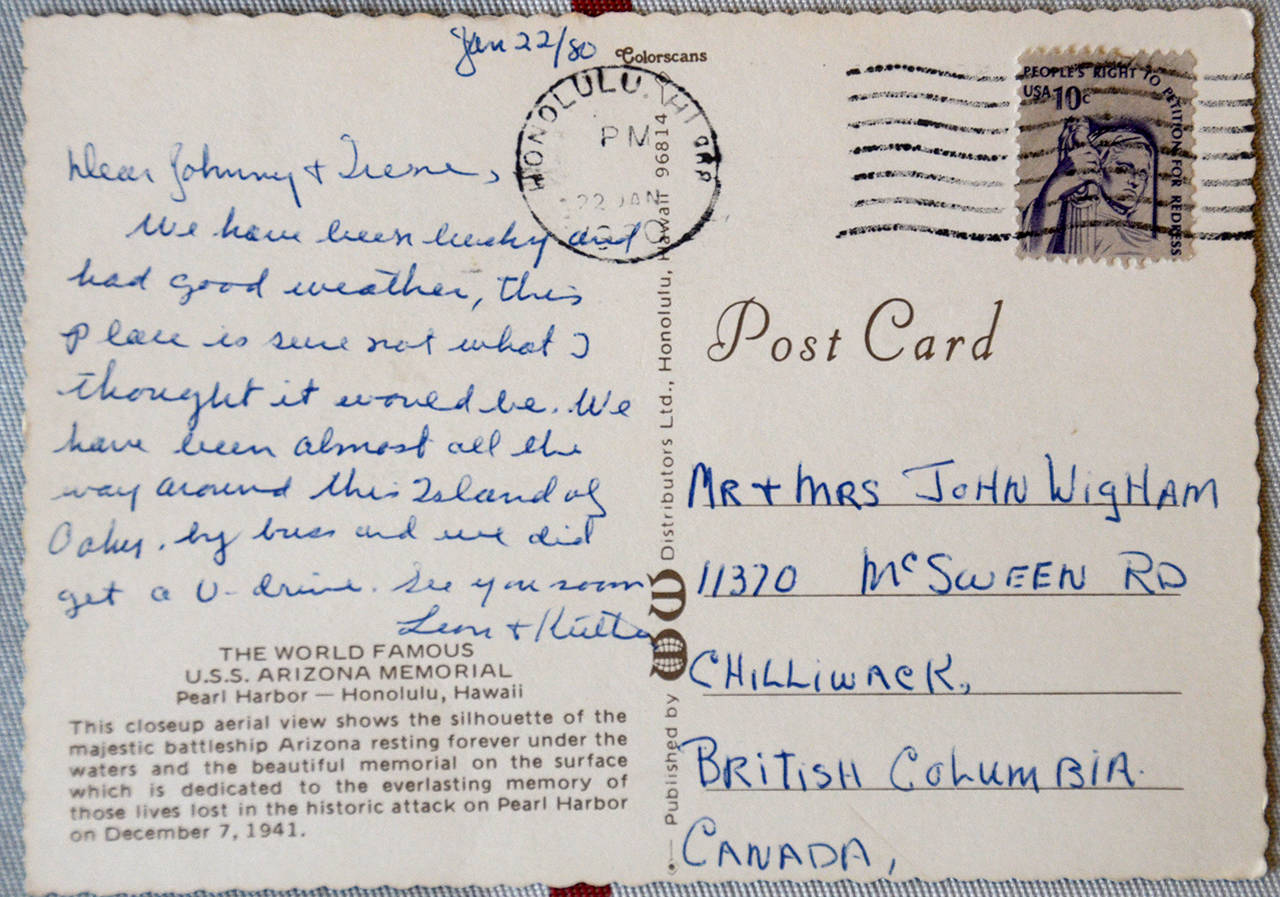 Jan 22/80
Colorscans
HONOLULU, HI
PM
22 JAN
PEOPLE'S RIGHT TO PETITION FOR REDRESS
USA 10c
Dear Johnny + Irene,
We have been lucky and
had good weather, this
place is sure not what I
thought it would be. We
have been almost all the
way around this Island of
Oahu. by buss and we did
get a U-drive. See you soon
Leon +
THE WORLD FAMOUS
U.S.S. ARIZONA MEMORIAL
Pearl Harbor — Honolulu, Hawaii
This closeup aerial view shows the silhouette of the
majestic battleship Arizona resting forever under the
waters and the beautiful memorial on the surface
which is dedicated to the everlasting memory of
those lives lost in the historic attack on Pearl Harbor
on December 7, 1941.
Published by Distributors Ltd., Honolulu, Hawaii 96814
Post Card
MR + MRS JOHN WIGHAM
11370 McSWEEN RD
CHILLIWACK,
BRITISH COLUMBIA.
CANADA,